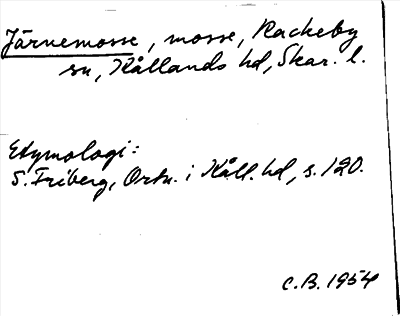 Järnemosse, mosse, Rackeby
sn, Kållands hd, Skar. l.
Etymologi:
S. Friberg, Ortn. i Kåll. hd, s. 120.
C.B. 1954